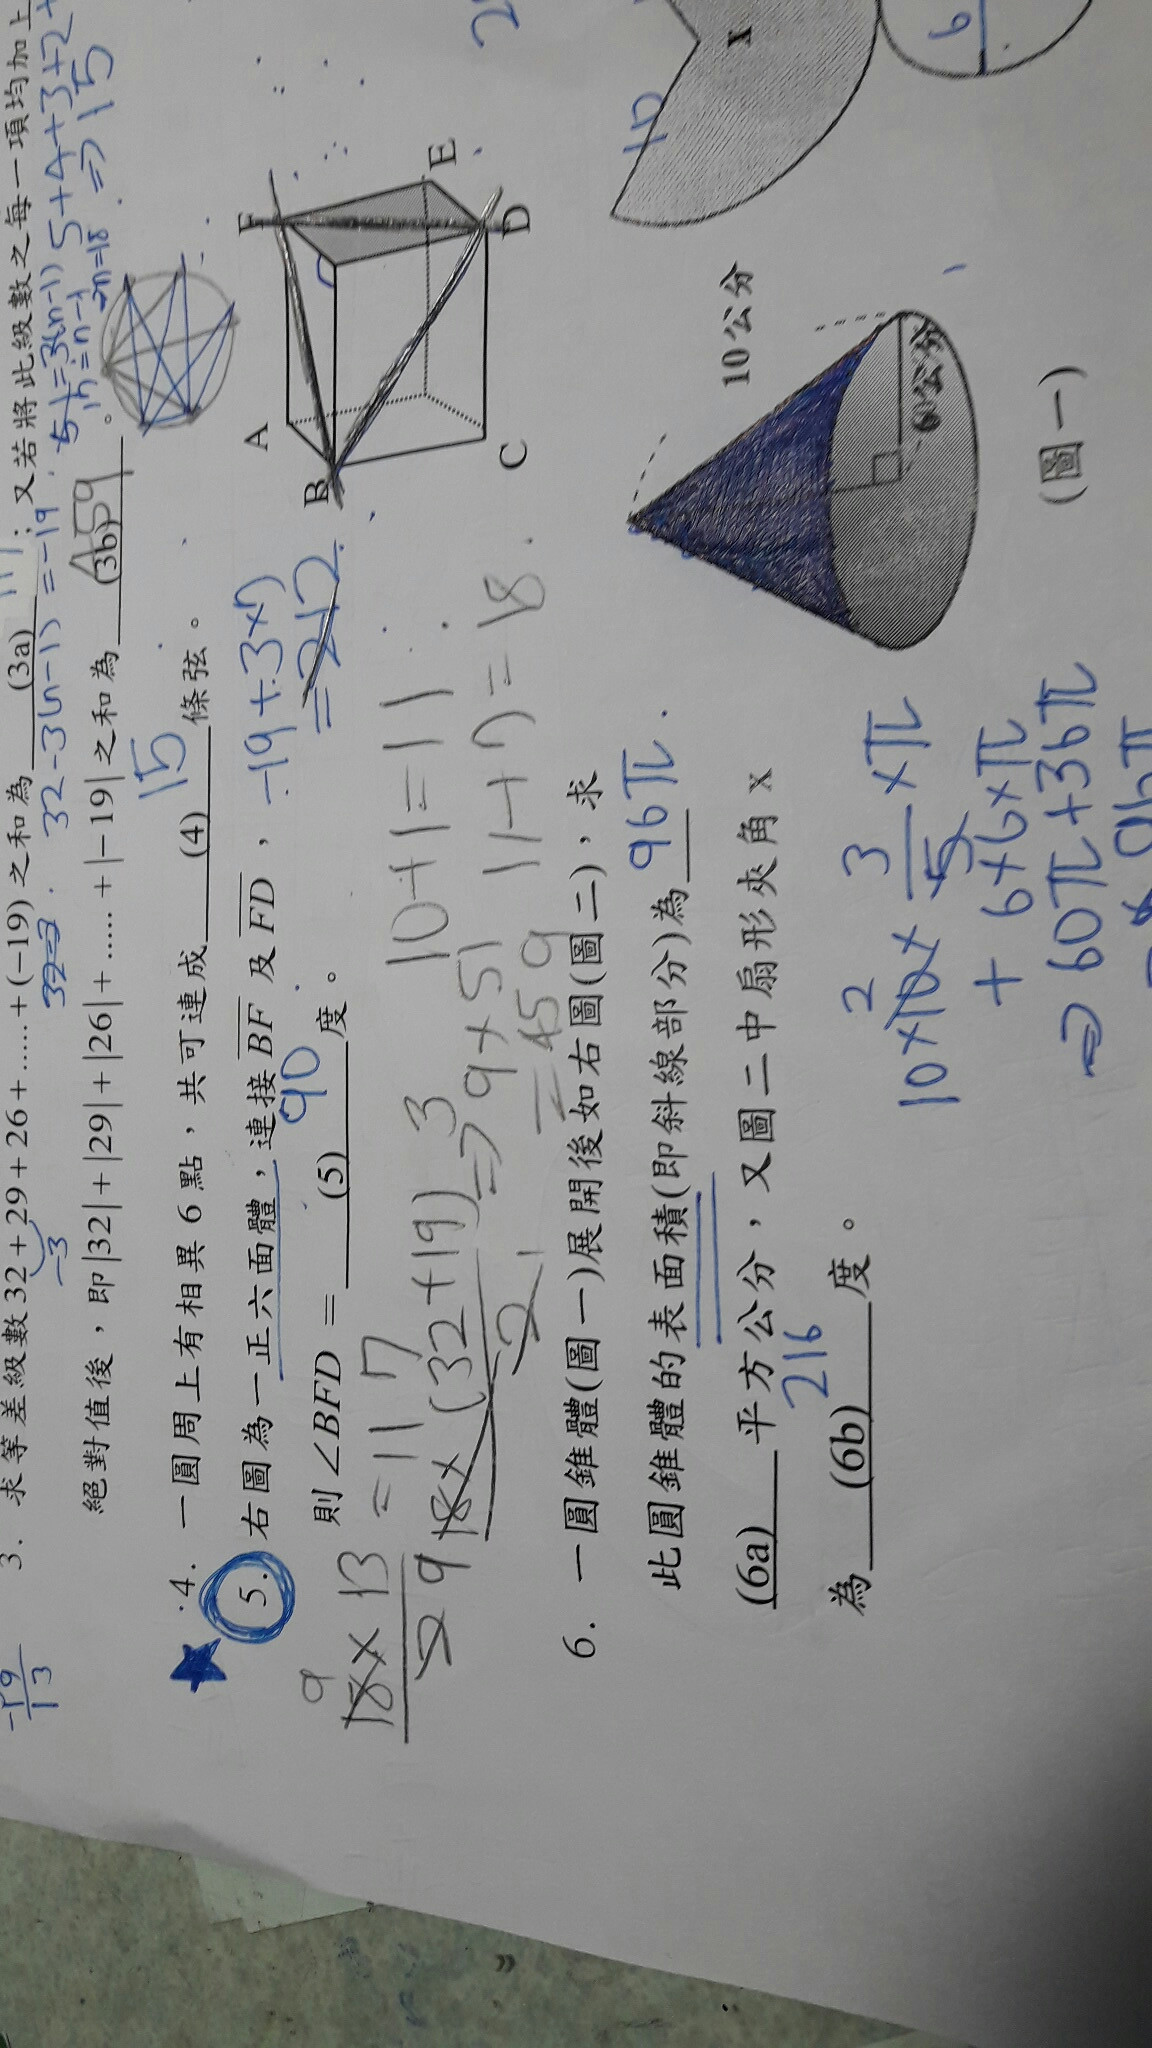 3. 求等差級數32+29+26+……+(-19)之和為 (3a) ；又若將此級數之每一項均加上
-3
32-3(n-1)=-19
絕對值後，即|32|+|29|+|26|+……+|-19|之和為 (3b) 。
459
5+4+3+2+
⇒15
4. 一圓周上有相異6點，共可連成 (4) 條弦。
15
5. 右圖為一正六面體，連接BF及FD，
則∠BFD= (5) 度。
90
-19+3×7
=212
18×13
9
2
=117
10+1=11
11+7=18
18×(32+19)
2
9
⇒9×51
=459
A
B
C
D
E
F
6. 一圓錐體(圖一)展開後如右圖(圖二)，求
此圓錐體的表面積(即斜線部分)為
96π
(6a) 平方公分，又圖二中扇形夾角x
為 (6b) 度。
216
10×10×3/5×π
2
+6×6×π
⇒60π+36π
96π
10公分
6公分
(圖一)
10
x
6